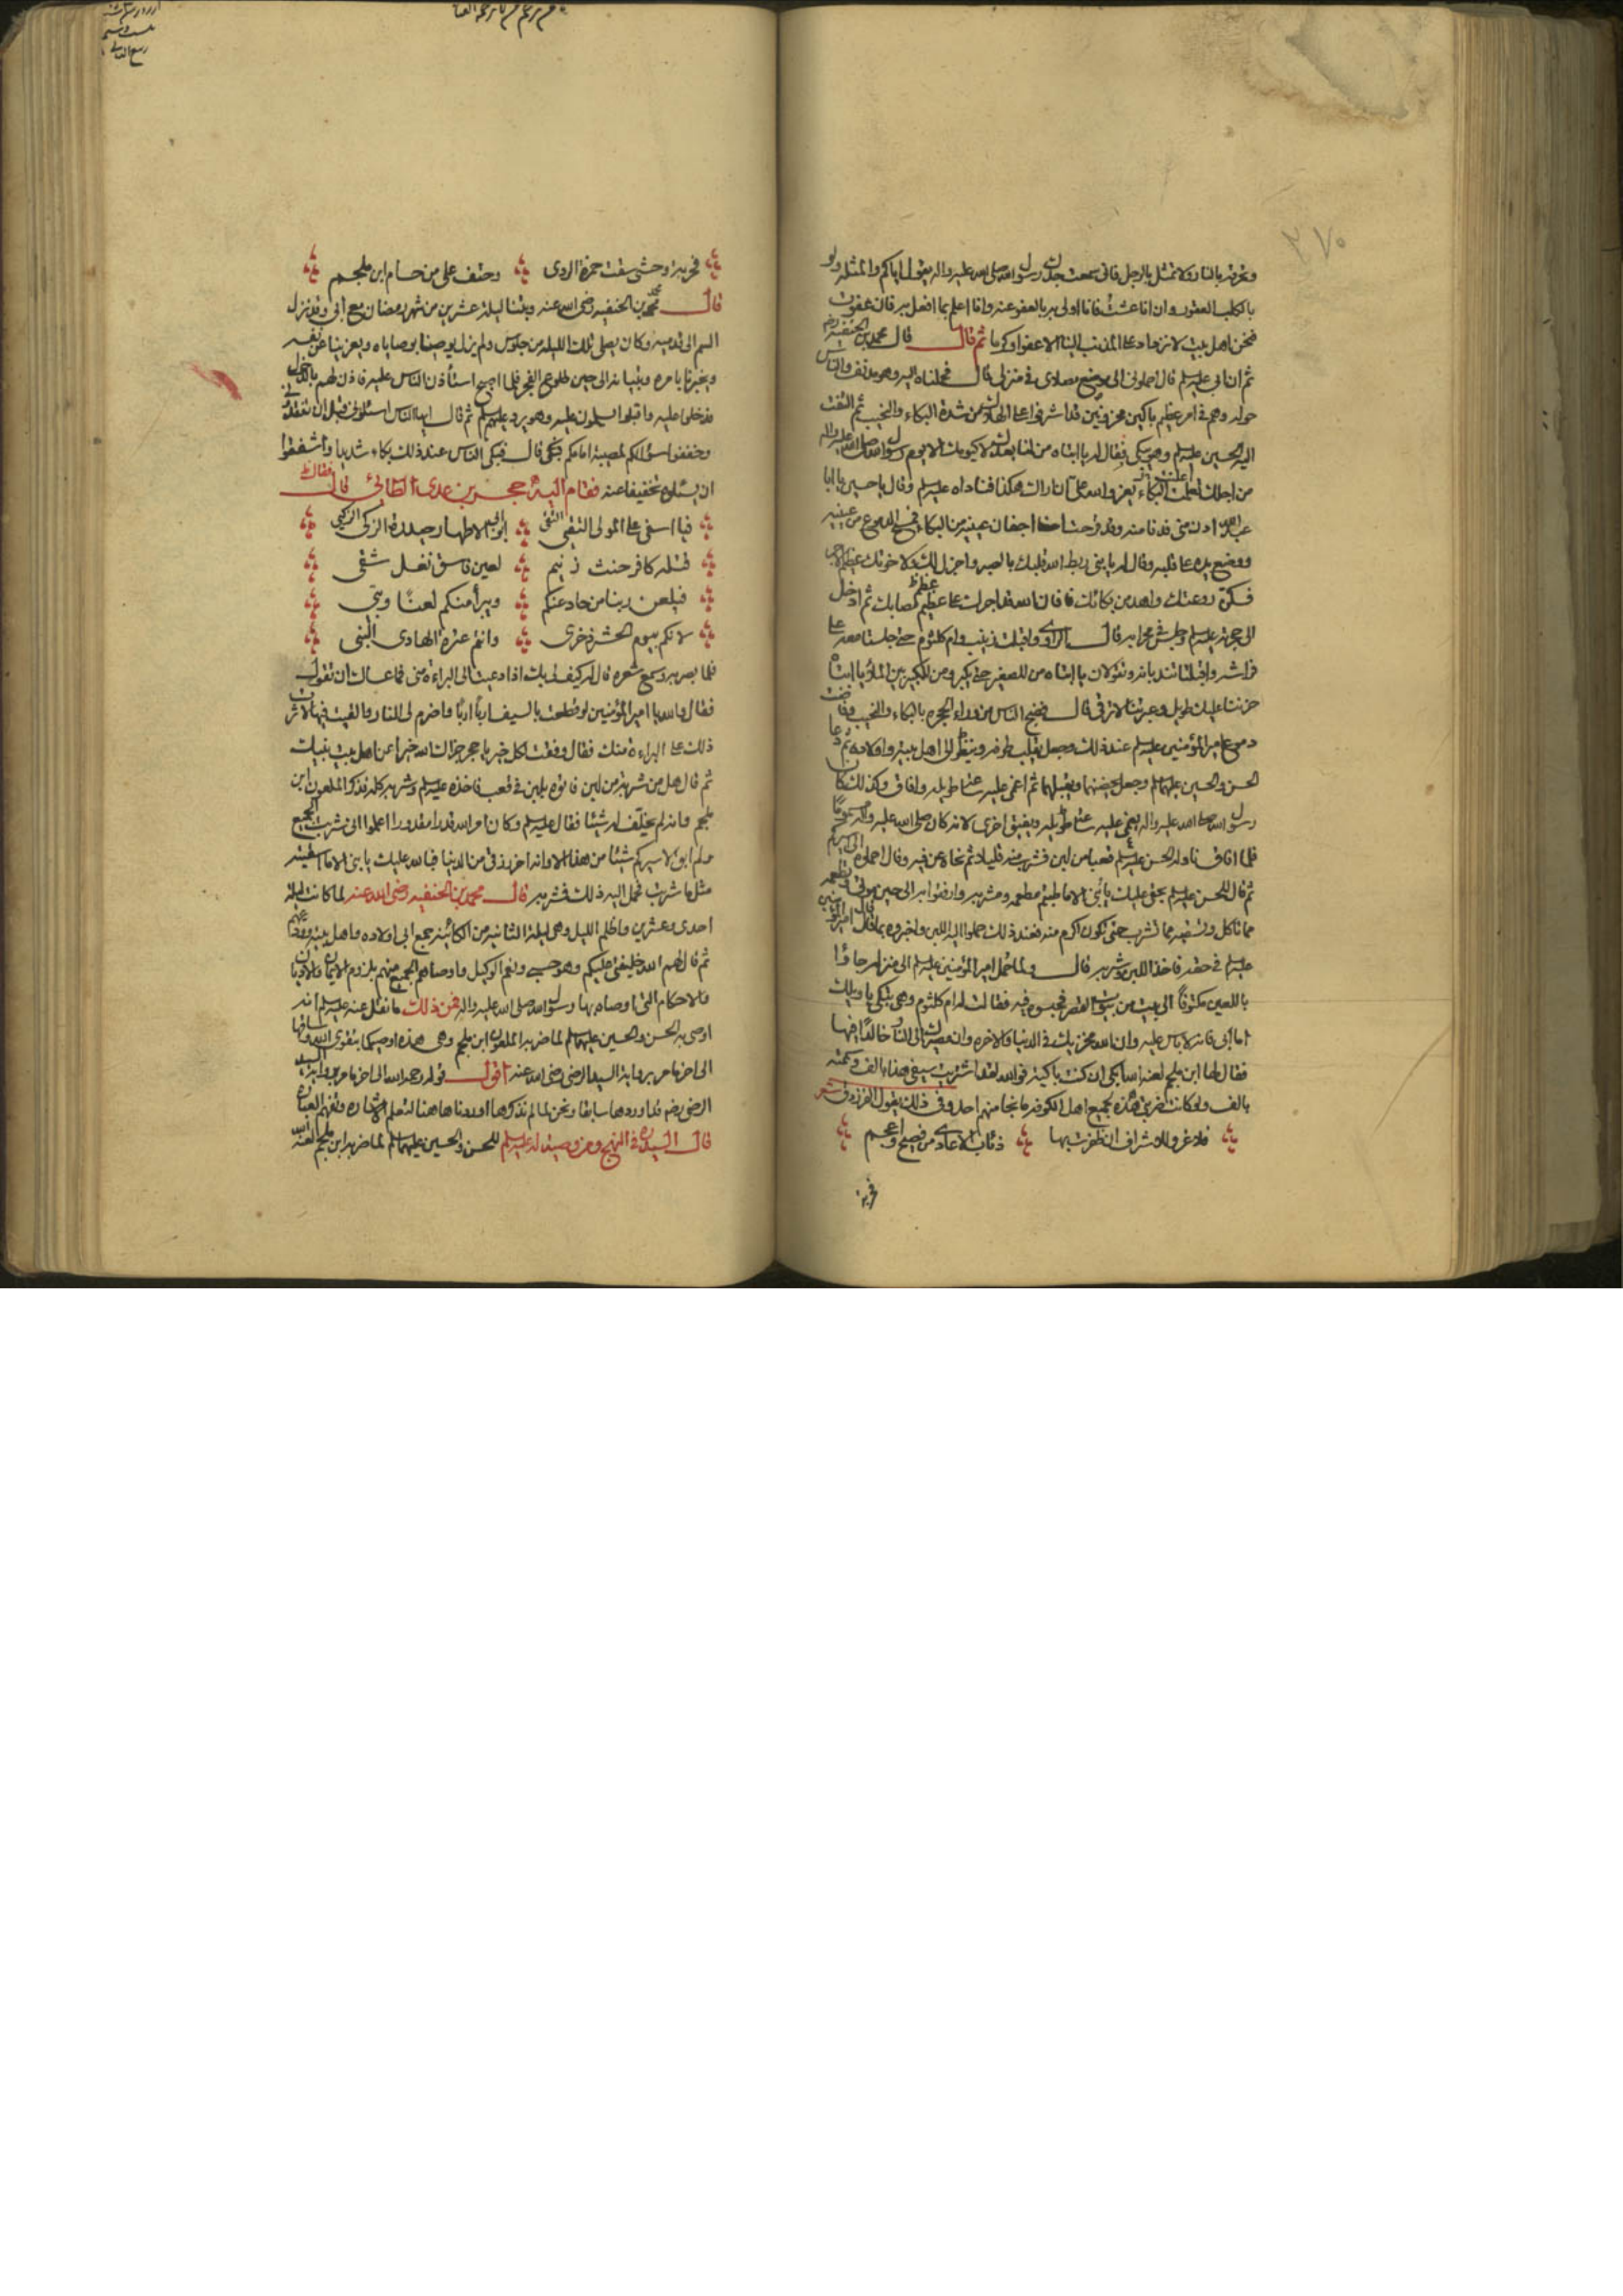 ٢٧٠
وتحرقه بالنار ولا تمثل بالرجل فاني سمعت جدك رسول الله صلى الله عليه واله يقول اياكم والمثلة ولو
بالكلب العقور وان انا عشت فانا اولى به بالعفو عنه وانا اعلم بما افعل به فان عفوت
فنحن اهل بيت لا نزداد على المذنب الينا الا عفوا وكرما ثم قال قال محمد بن الحنفيه رضه
ثم ان ابي عليه السلم قال احملوني الى موضع مصلاي في منزلي قال فحملناه اليه وهو مدنف والناس
حوله وهم في امر عظيم باكين محزونين قد اشرفوا على الهلاك من شدة البكاء والنحيب ثم التفت
اليه الحسين عليه السلم وهو يبكي فقال له يا ابتاه من لنا بعدك لا كيومك الا يوم رسول الله صلى الله عليه واله
من اجلك تعلمت البكاء يعز والله علي ان اراك هكذا فناداه عليه السلم وقال يا حسين يا ابا
عبد الله ادن مني فدنا منه وقد قرحت اجفان عينيه من البكاء فمسح الدموع من عينيه
ووضع يده على قلبه وقال له يا بني ربط الله قلبك بالصبر واجزل لك ولاخوتك عظيم الاجر
فسكن روعتك واهدء من بكائك فان الله قد اجرك على عظيم مصابك ثم ادخل
الى حجرته عليه السلم وجلس في محرابه قال الراوي واقبلت زينب وام كلثوم حتى جلستا معه على
فراشه واقبلتا تندبانه وتقولان يا ابتاه من للصغير حتى يكبر ومن للكبير بين الملأ يا ابتاه
حزننا عليك طويل وعبرتنا لا ترقى قال فضج الناس من وراء الحجره بالبكاء والنحيب وفاضت
دموع امير المؤمنين عليه السلم عند ذلك وجعل يقلب طرفه وينظر الى اهل بيته واولاده ثم دعا
الحسن والحسين عليهما السلم وجعل يحضنهما ويقبلهما ثم اغمي عليه ساعة طويله وافاق وكذلك كان
رسول الله صلى الله عليه واله يغمى عليه ساعة طويله ويفيق اخرى لانه كان صلى الله عليه واله مسموما
فلما افاق ناوله الحسن عليه السلم قعبا من لبن فشرب منه قليلا ثم نحاه عن فيه وقال احملوه الى اسيركم
ثم قال للحسن عليه السلم بحقي عليك يا بني الا ما طيبتم مطعمه ومشربه وارفقوا به الى حين موتي وتطعمه
مما تاكل وتسقيه مما تشرب حتى تكون اكرم منه فعند ذلك حملوا اليه اللبن واخبروه بما قال امير المؤمنين
عليه السلم في حقه فاخذ اللبن وشربه قال ولما حمل امير المؤمنين عليه السلم الى منزله جاؤا
باللعين مكتوفا الى بيت من بيوت القصر فحبسوه فيه فقالت له ام كلثوم وهي تبكي يا ويلك
اما ابي فانه لا باس عليه وان الله مخزيك في الدنيا والاخره وان مصيرك الى النار خالدا فيها
فقال لها ابن ملجم لعنه الله ابكي ان كنت باكية فوالله لقد اشتريت سيفي هذا بالف وسممته
بالف ولو كانت ضربتي هذه لجميع اهل الكوفه ما نجا منهم احد وفي ذلك يقول الفرزدق شعر
فلا غرو للاشراف ان ظفرت بها ذئاب الاعادي من فصيح واعجم
فحربة
فحربة وحشي سقت حمزة الردى وحتف علي من حسام ابن ملجم
قال محمد بن الحنفيه رضي الله عنه وبتنا ليلة عشرين من شهر رمضان مع ابي وقد نزل
السم الى قدميه وكان يصلي تلك الليلة من جلوس ولم يزل يوصينا بوصاياه ويعزينا عن نفسه
ويخبرنا بامره وتبيانه الى حين طلوع الفجر فلما اصبح استأذن الناس عليه فاذن لهم بالدخول
فدخلوا عليه واقبلوا يسلمون عليه وهو يرد عليهم السلم ثم قال ايها الناس اسئلوني قبل ان تفقدوني
وخففوا سؤالكم لمصيبة امامكم قال فبكى الناس عند ذلك بكاء شديدا واشفقوا
ان يسئلوه تخفيفا عنه فقام اليه حجر بن عدي الطائي فقال
فيا اسفي على المولى التقي ابو الاطهار حيدرة الزكي
قتله كافر حنث زنيم لعين فاسق نغل شقي
فيلعن ربنا من حاد عنكم ويبرأ منكم لعنا وبي
لانكم بيوم الحشر ذخري وانتم عترة الهادي النبي
فلما بصر به وسمع شعره قال له كيف لي بك اذا دعيت الى البراءة مني فما عساك ان تقول
فقال والله يا امير المؤمنين لو قطعت بالسيف اربا اربا واضرم لي النار والقيت فيها لاثرت
ذلك على البراءة منك فقال وفقت لكل خير يا حجر جزاك الله خيرا عن اهل بيت نبيك
ثم قال هل من شربة من لبن فاتوه بلبن في قعب فاخذه عليه السلم وشربه كله فذكر الملعون ابن
ملجم وانه لم يخلف له شيئا فقال عليه السلم وكان امر الله قدرا مقدورا اعلموا اني شربت الجميع
ولم ابق لاسيركم شيئا من هذا الا وانه اخر رزقي من الدنيا فبالله عليك يا بني الا ما اسقيته
مثل ما شربت فحمل اليه ذلك فشربه قال محمد بن الحنفيه رضي الله عنه لما كانت ليلة
احدى وعشرين واظلم الليل وهي ليلة الثانيه من الكائنة جمع ابي اولاده واهل بيته وودعهم
ثم قال لهم الله خليفتي عليكم وهو حسبي ونعم الوكيل واوصاهم الجميع منهم بلزوم الايمان والاديان
والاحكام التي اوصاه بها رسول الله صلى الله عليه واله فمن ذلك ما نقل عنه عليه السلم انه
اوصى به الحسن والحسين عليهما السلم لما ضربه الملعون ابن ملجم وهي هذه اوصيكما بتقوى الله وساقها
الى اخر ما مر برواية السيد الرضي رضي الله عنه اقول قوله رحمه الله الى اخر ما مر برواية السيد
الرضي رضه قد اوردها سابقا ونحن لما لم نذكرها اوردناها هاهنا لتعلم الاشاره وتفهم العباره
قال السيد ره في النهج ومن وصية له عليه السلم للحسن والحسين عليهما السلم لما ضربه ابن ملجم لعنه الله